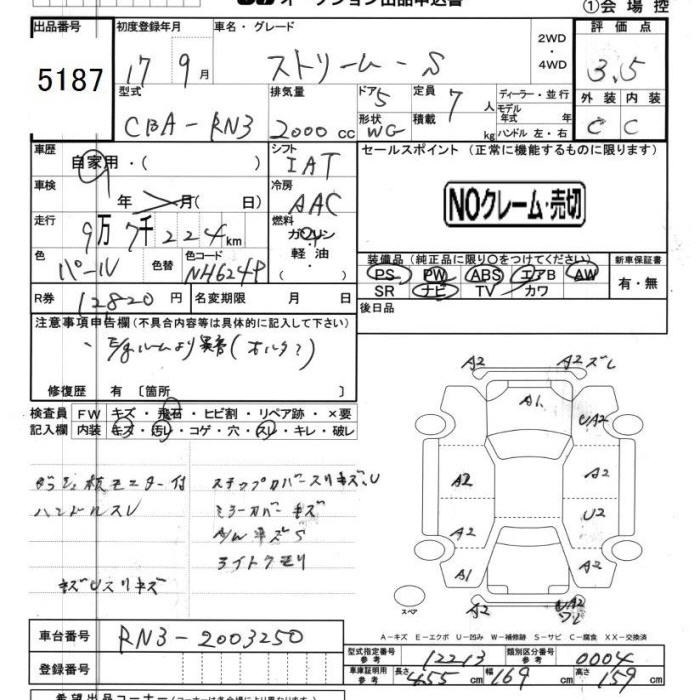 オークション出品申込書
①会場控
出品番号 初度登録年月 車名・グレード 2WD ・4WD 評価点
5187 17年9月 ストリーム - S 3.5
型式 排気量 ドア 5 定員 7人 ディーラー・並行 外装 内装
CBA-RN3 2000cc 形状 WG 積載 kg モデル年式 年 ハンドル 左・右 C C
車歴 自家用・( ) シフト IAT セールスポイント (正常に機能するものに限ります。)
車検 年 月( 日) 冷房 AAC
NOクレーム・売切
走行 9万7千224km 燃料 ガソリン・軽油・( )
色 パール 色替 色コード NH624P
装備品(純正品に限り○をつけてください) 新車保証書
PS PW ABS エアB AW 有・無
SR ナビ TV カワ
R券 12820円 名変期限 月 日 後日品
注意事項申告欄(不具合内容等は具体的に記入して下さい)
、E/gルームより異音(オルタ?)
修復歴 有 〔箇所 〕
検査員 FW キズ・飛石・ヒビ割・リペア跡・×要
記入欄 内装 キズ・汚レ・コゲ・穴・スレ・キレ・破レ
ダッシュ板モニター付 ステップカバースリキズ、U
ハンドルスレ ミラーカバーキズ
A/WキズS
ライトクモリ
キズUスリキズ
A2 A2ズレ
A1 UA2
A2 A2
U2
A2 A2
A1
A2 UA2
スペア
A−キズ E−エクボ U−凹み W−補修跡 S−サビ C−腐食 XX−交換済
車台番号 RN3-2003250
型式指定番号 参考 12213 類別区分番号 参考 0004
登録番号 車庫証明用 参考 長さ 455cm 幅 169cm 高さ 159cm
希望出品コーナー